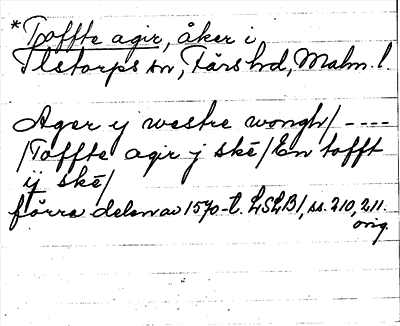 *Toffte agir, åker i
Ilstorps sn, Färs hd, Malm. l.
Ager ÿ westre wongh/ ----
/Toffte agir j skē/ En tofft
ij skē/
förra delen av 1570-t. LSLB1, ss. 210, 211.
orig.